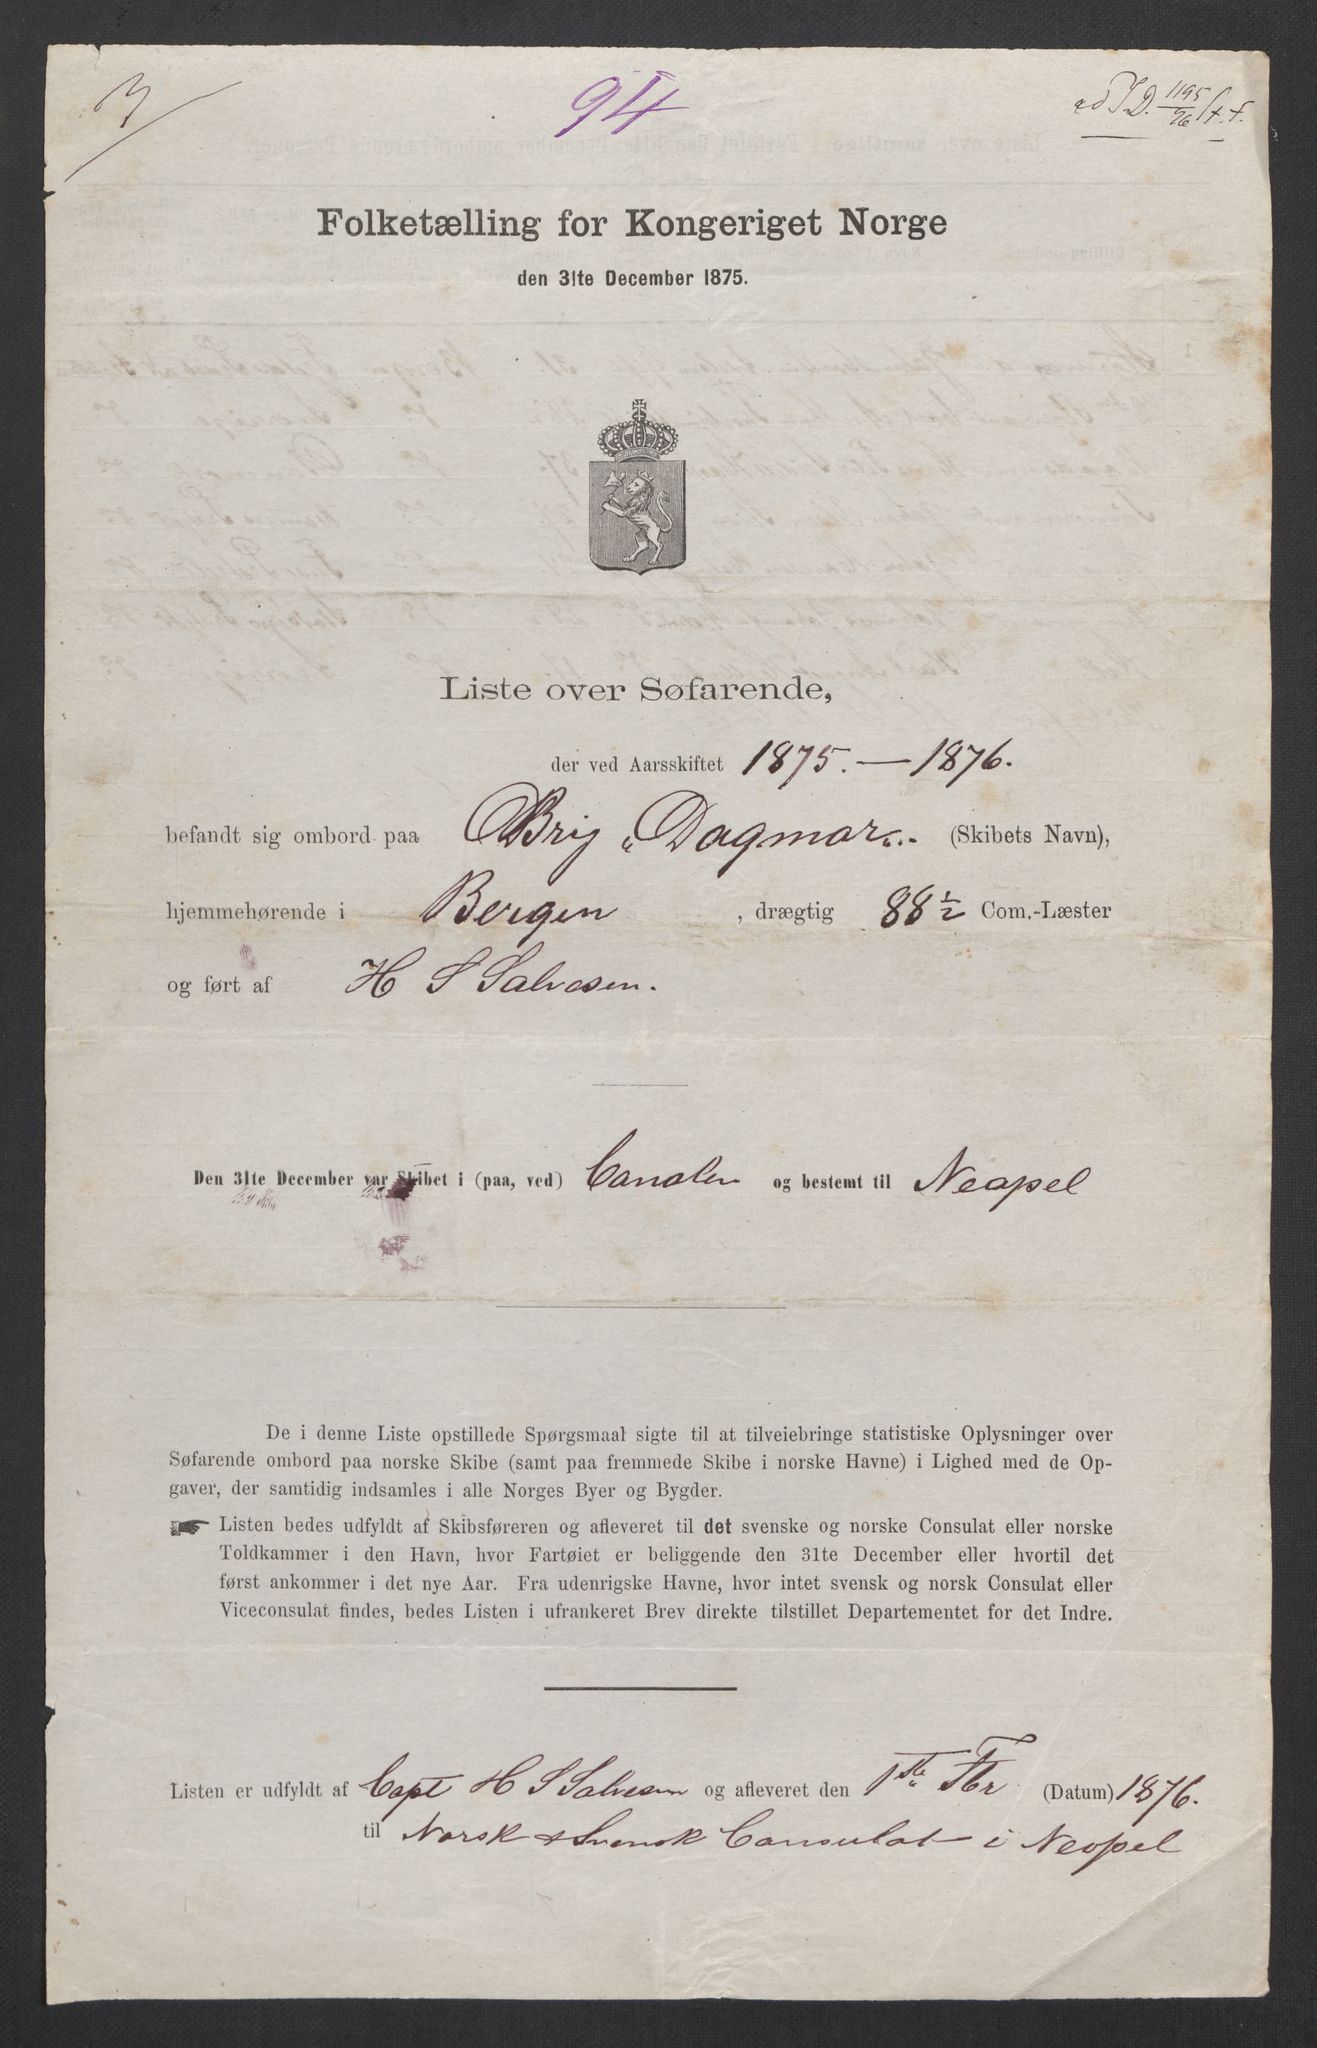 94
ad J. D. 1195/76
Folketælling for Kongeriget Norge
den 31te December 1875.
Liste over Søfarende,
der ved Aarsskiftet 1875. — 1876.
befandt sig ombord paa Brig "Dagmar" (Skibets Navn),
hjemmehørende i Bergen, drægtig 88 1/2 Com.-Læster
og ført af H S Salvesen.
Den 31te December var Skibet i (paa, ved) Canalen og bestemt til Neapel
De i denne Liste opstillede Spørgsmaal sigte til at tilveiebringe statistiske Oplysninger over
Søfarende ombord paa norske Skibe (samt paa fremmede Skibe i norske Havne) i Lighed med de Op-
gaver, der samtidig indsamles i alle Norges Byer og Bygder.
☛ Listen bedes udfyldt af Skibsføreren og afleveret til det svenske og norske Consulat eller norske
Toldkammer i den Havn, hvor Fartøiet er beliggende den 31te December eller hvortil det
først ankommer i det nye Aar. Fra udenrigske Havne, hvor intet svensk og norsk Consulat eller
Viceconsulat findes, bedes Listen i ufrankeret Brev direkte tilstillet Departementet for det Indre.
Listen er udfyldt af Capt H S Salvesen og afleveret den 1ste Fbr (Datum) 1876.
til Norsk & Svensk Consulat i Neapel